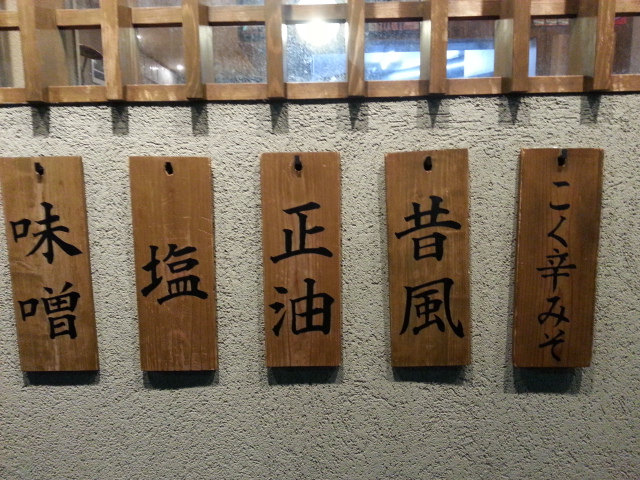 味噌
塩
正油
昔風
こく辛みそ